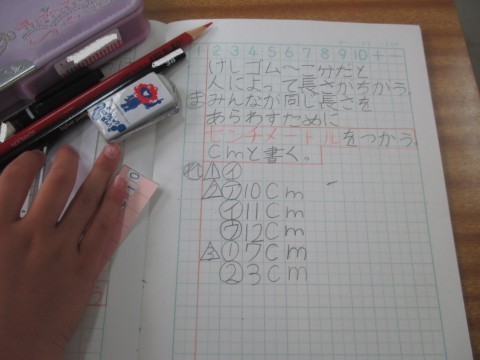 1 2 3 4 5 6 7 8 9 10 + +
けしゴム〜こ分だと
人によって長さがちがう。
ま みんなが同じ長さを
あらわすために
センチメートルをつかう。
Cmと書く。
れ △1 イ
△2 ア 10Cm
イ 11Cm
ウ 12Cm
△3 ① 7Cm
② 3Cm